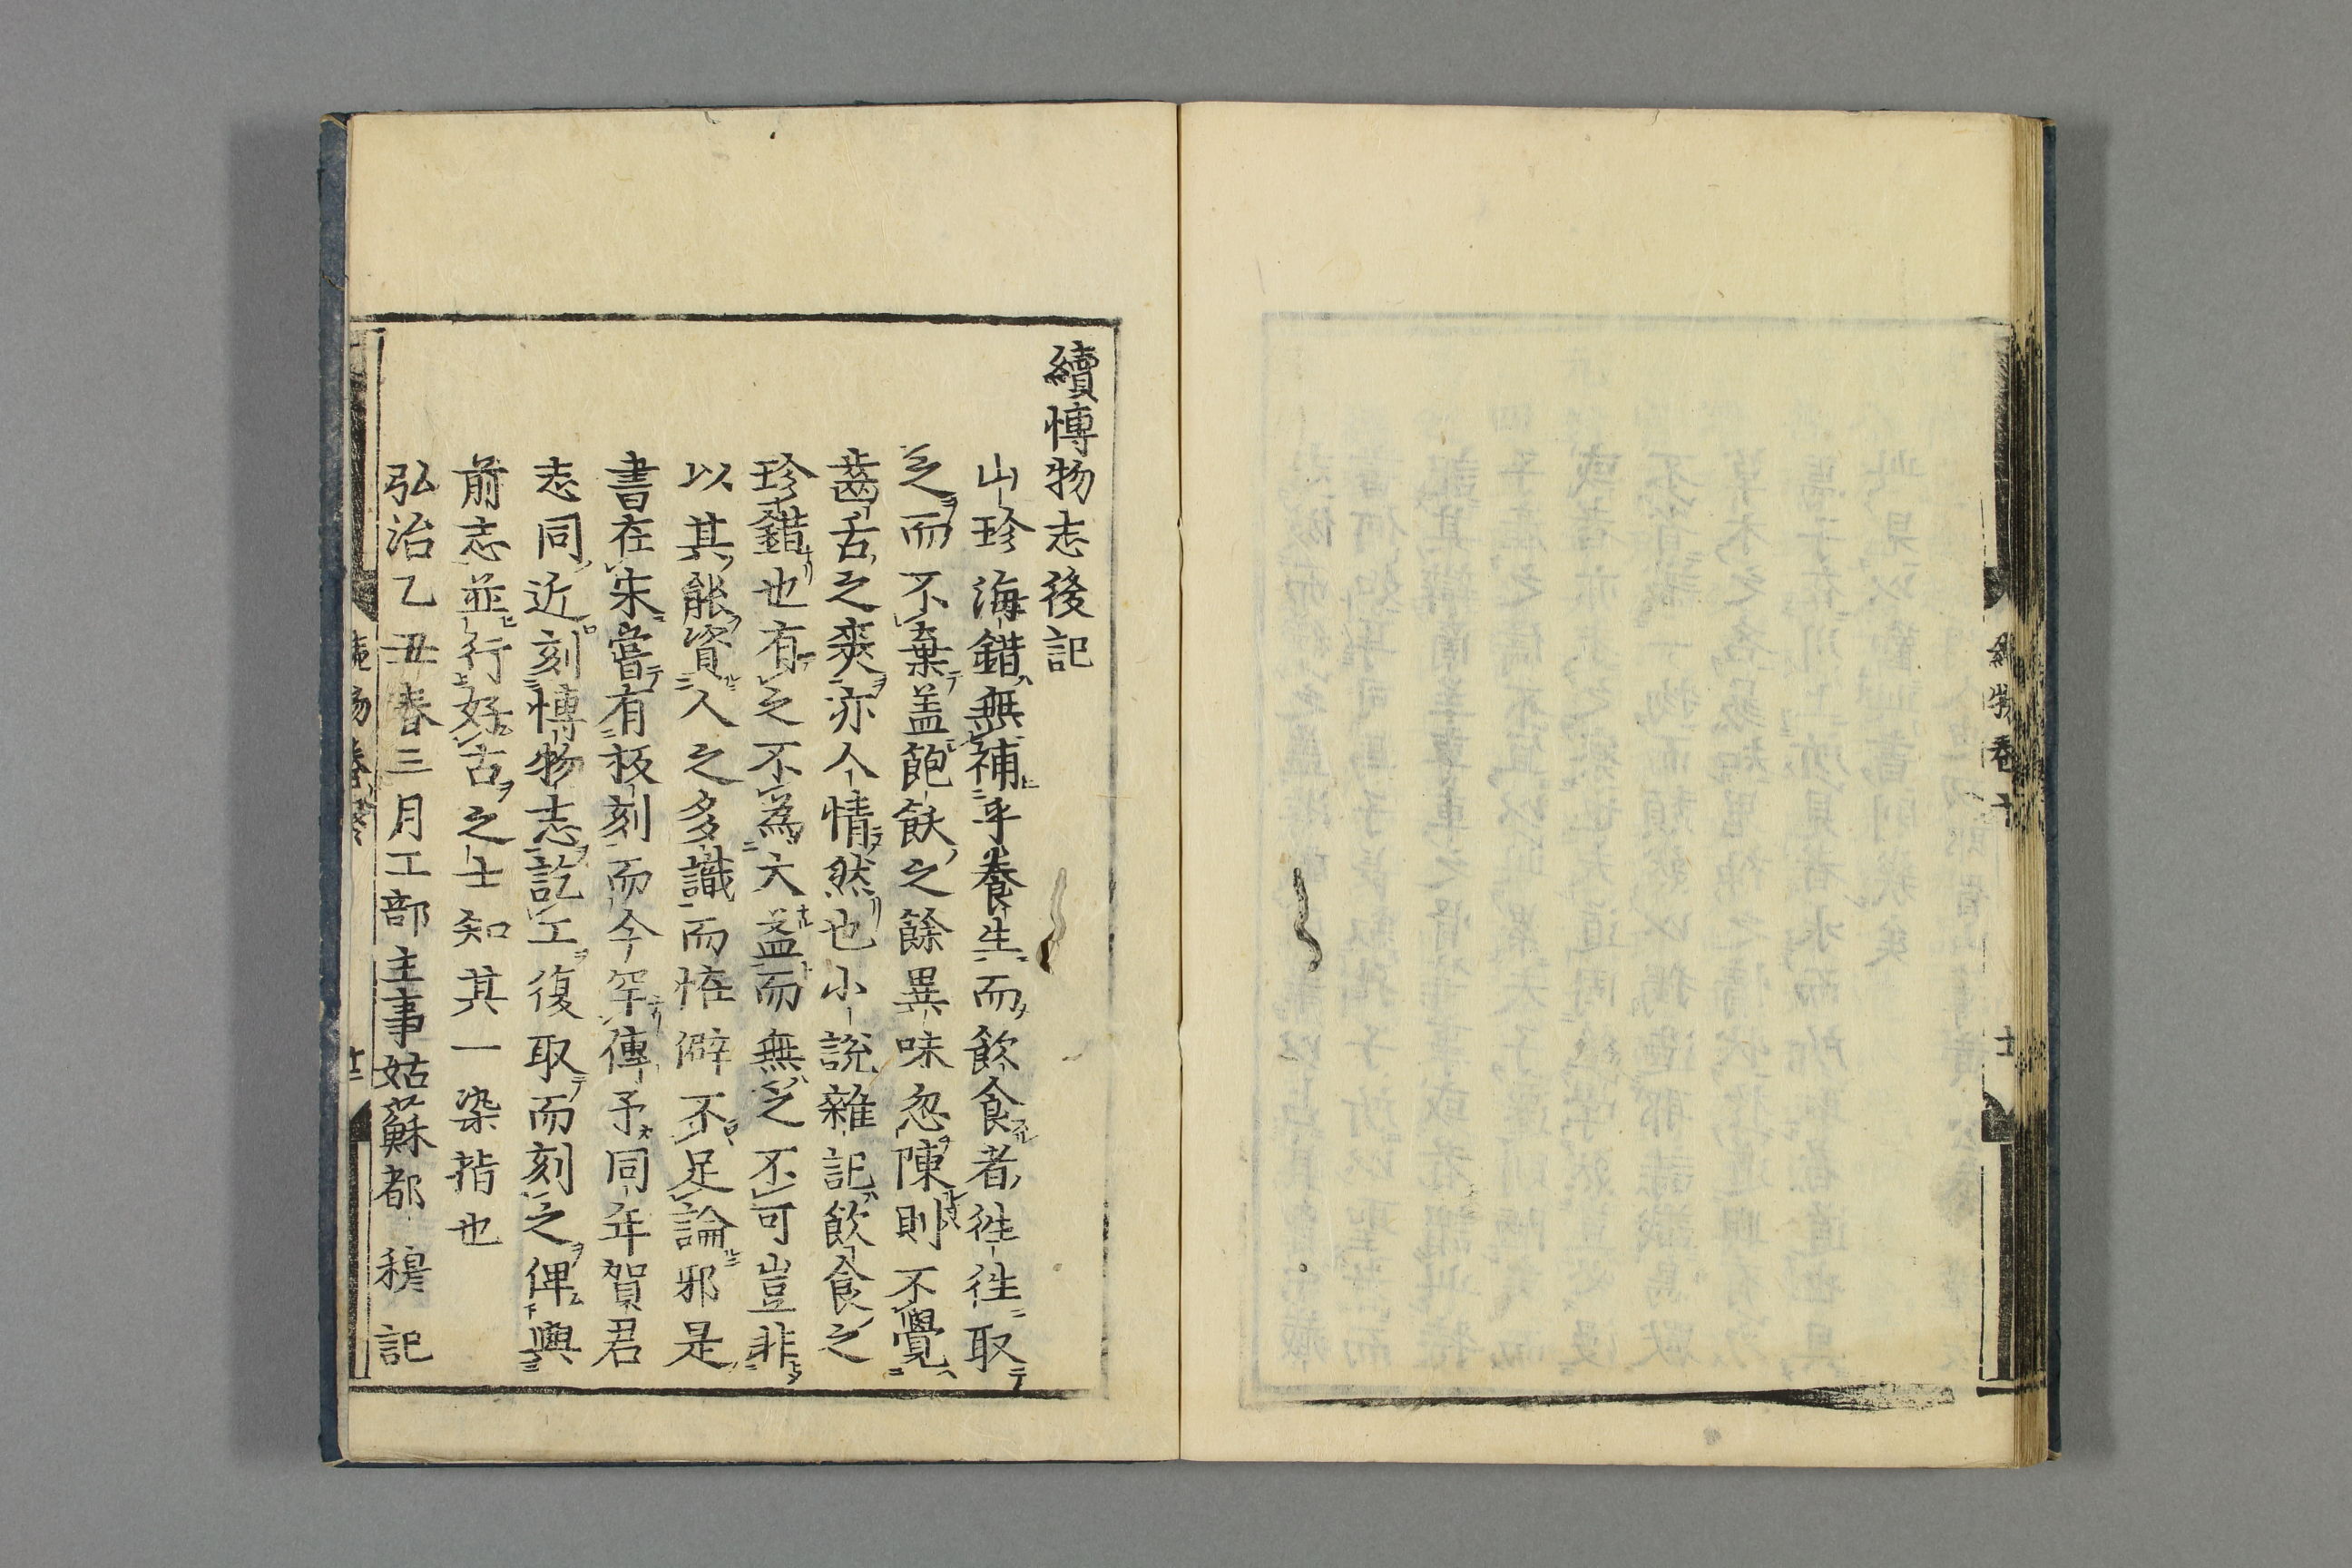 續博物志後記
山珍海錯無補乎養生而飲食者徃徃取
之而不棄盖飽飫之餘異味忽陳則不覺
齒舌之爽亦人情然也小說雜記飲食之
珍錯也有之不為大益而無之不可豈非
以其能資人之多識而恠僻不足論邪是
書在宋嘗有板刻而今罕傳予同年賀君
志同近刻博物志訖工復取而刻之俾與
前志並行好古之士知其一染指也
弘治乙丑春三月工部主事姑蘇都 穆 記